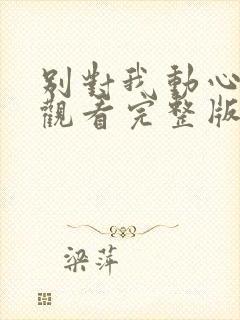 別對我動心
觀看完整版
梁萍